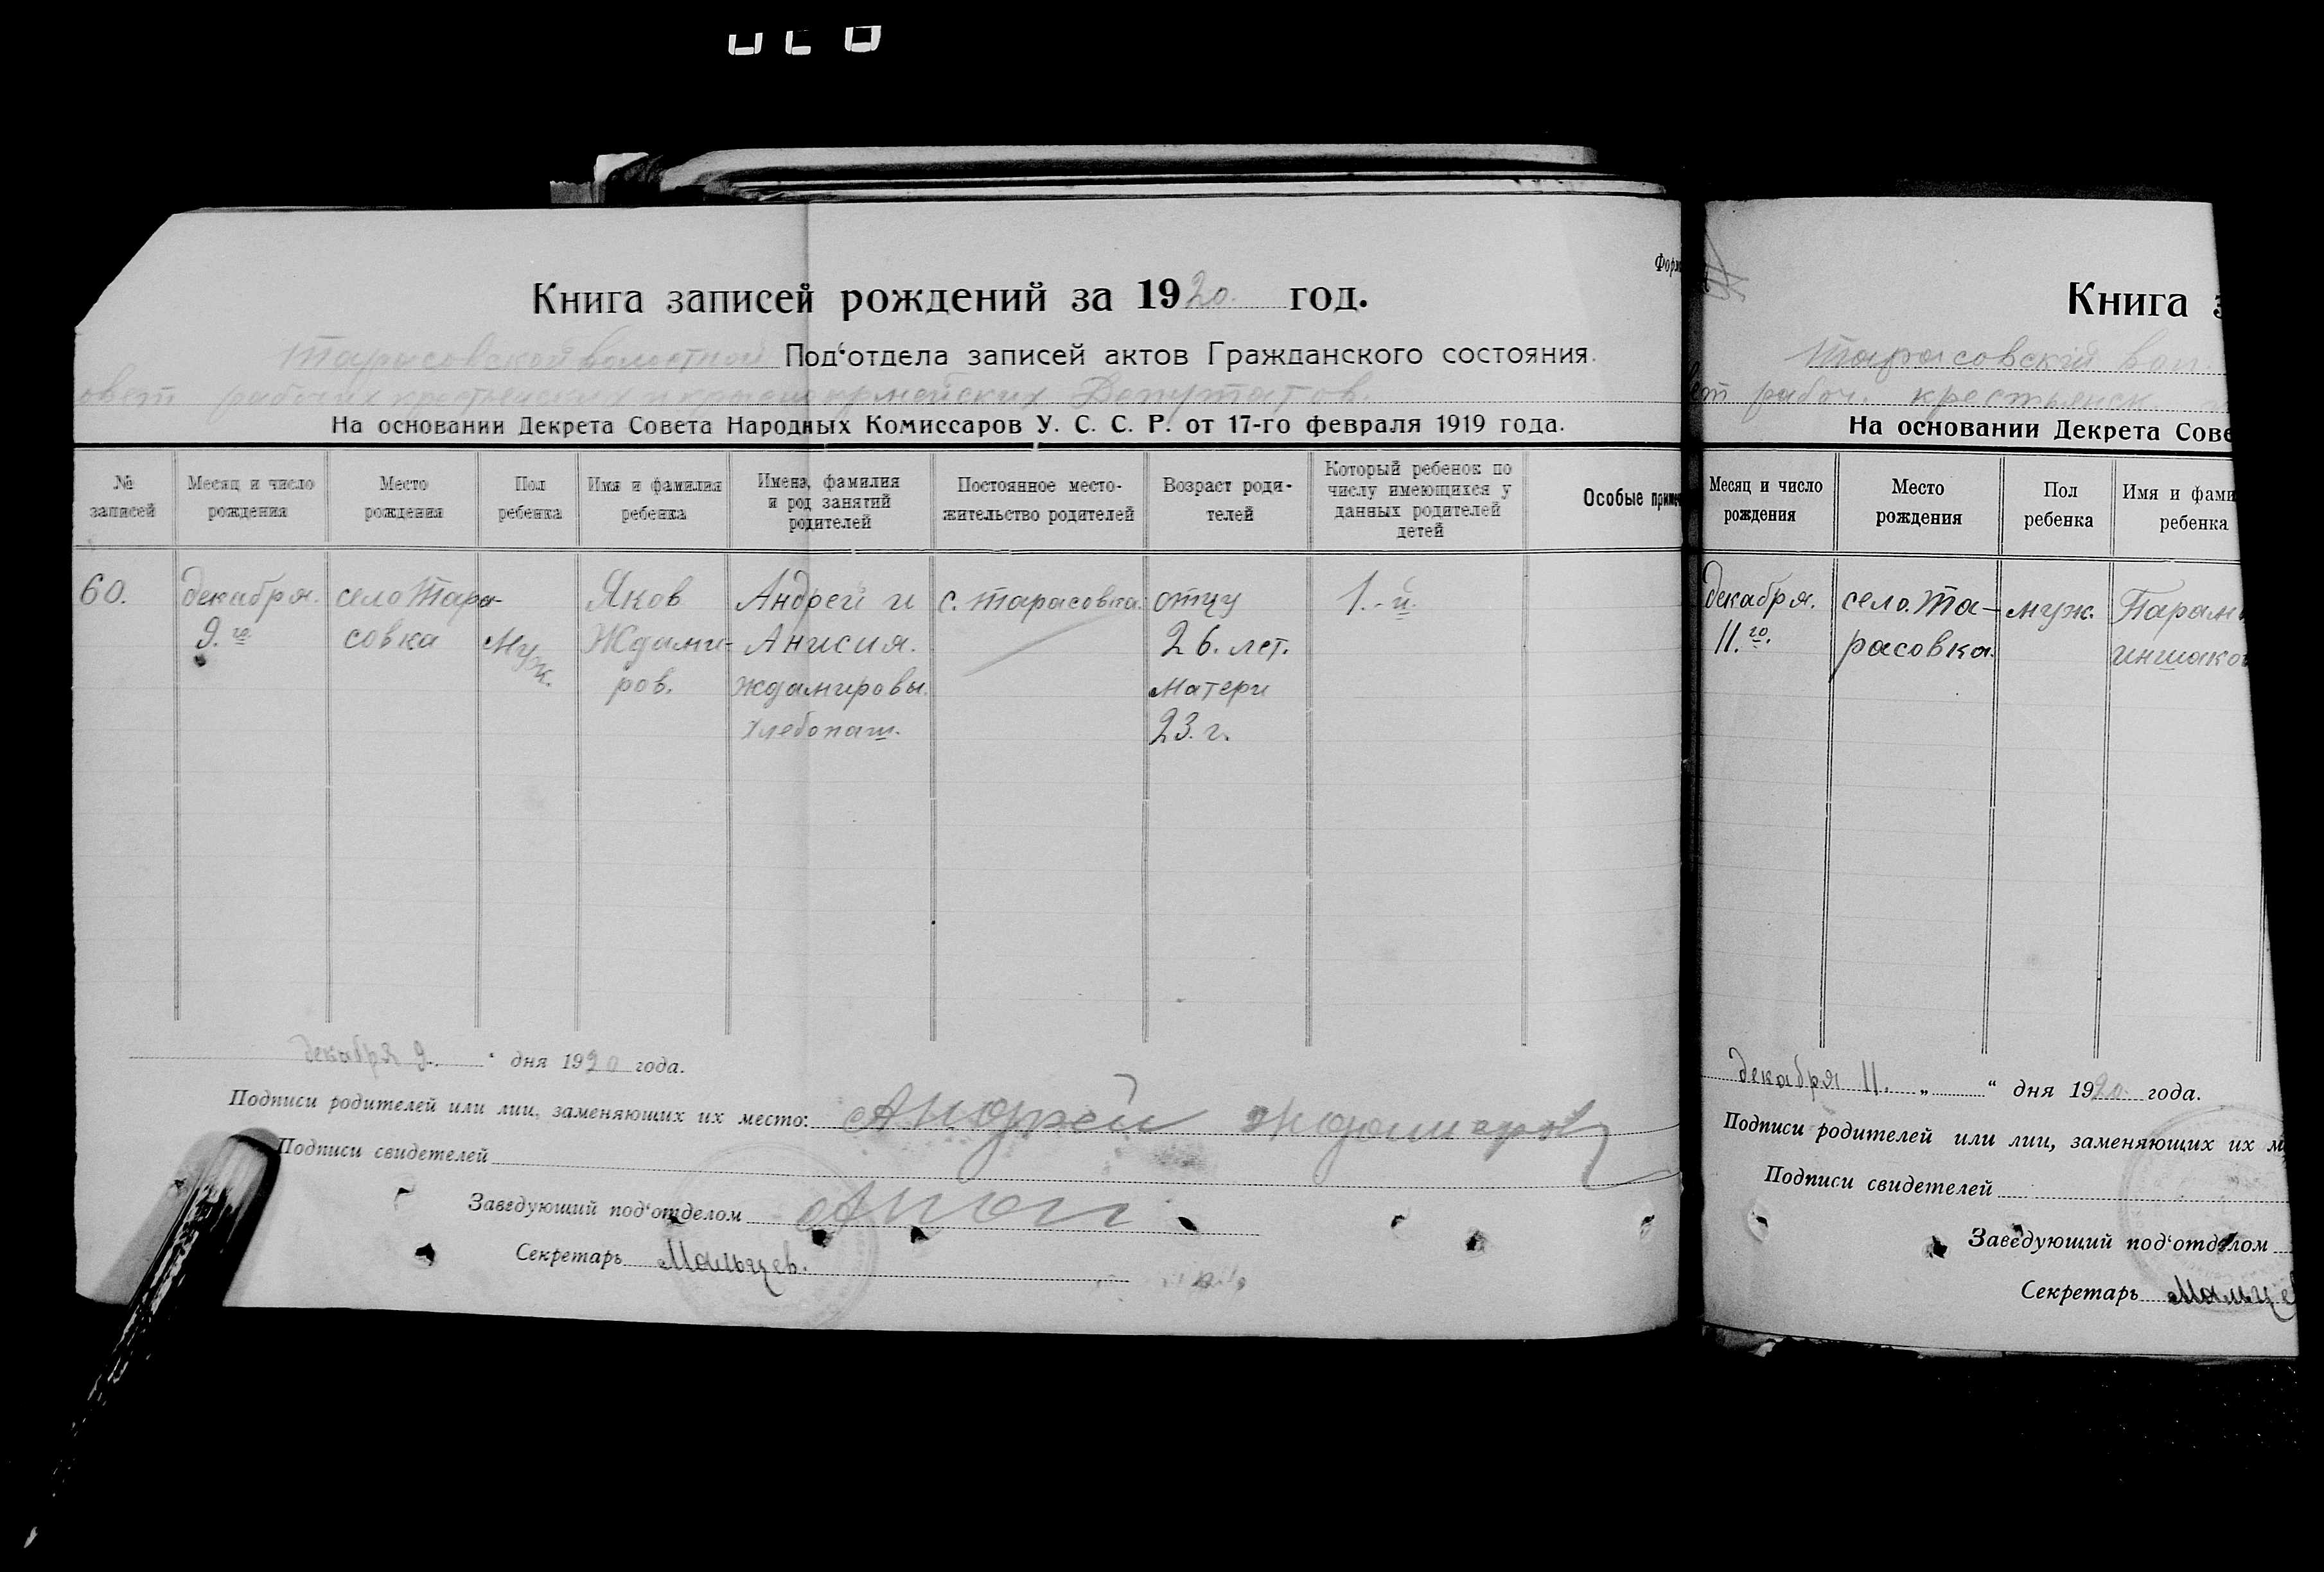 Форм
Книга записей рождений за 1920. год.
Тарасовской волостной Под‘отдела записей актов Гражданского состояния.
овет рабочих крестьянских и красноармейских Депутатов.
На основании Декрета Совета Народных Комиссаров У. С. С. Р. от 17-го февраля 1919 года.
№ записей
Месяц и число рождения
Место рождения
Пол ребенка
Имя и фамилия ребенка
Имена, фамилия и род занятий родителей
Постоянное место-жительство родителей
Возраст роди-телей
Который ребенок по числу имеющихся у данных родителей детей
Особые примеч
60.
декабря.
9.го
село Тара-
совка
муж.
Яков
Ждами-
ров.
Андрей и
Анисия.
Ждамировы.
хлебопаш.
с. Тарасовка.
отцу
26. лет.
матери
23. г.
1.-й.
декабря 9. “ дня 1920 года.
Подписи родителей или лиц, заменяющих их место: Андрей Ждамеров
Подписи свидетелей
Заведующий под‘отделом
Секретарь Мальцев.
Книга з
Тарасовскій вол.
ет рабоч. крестьянск
На основании Декрета Сове
Месяц и число рождения
Место рождения
Пол ребенка
Имя и фами
ребенка
декабря.
11.го.
село Та-
расовка.
муж.
декабря 11. „ “ дня 1920. года.
Подписи родителей или лиц, заменяющих их м
Подписи свидетелей
Заведующий под‘отделом
Секретарь Мальце